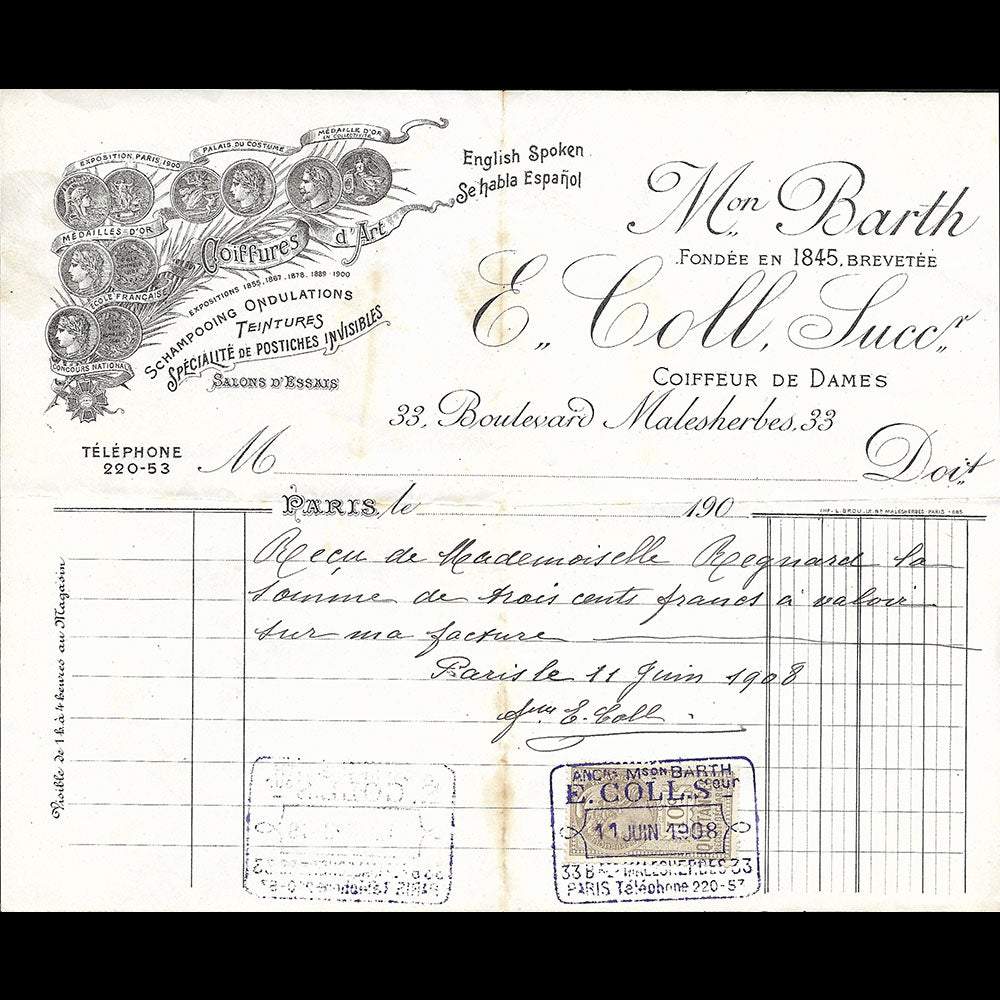 EXPOSITION PARIS 1900
PALAIS DU COSTUME
MÉDAILLE D'OR
EN COLLECTIVITÉ
MÉDAILLES D'OR
ÉCOLE FRANÇAISE
CONCOURS NATIONAL
Coiffures d'Art
EXPOSITIONS 1855, 1867, 1878, 1889 - 1900
SCHAMPOOING ONDULATIONS
TEINTURES
SPÉCIALITÉ DE POSTICHES INVISIBLES
SALONS D'ESSAIS
English Spoken
Se habla Español
Mon Barth
FONDÉE EN 1845, BREVETÉE
E. Coll, Succr
COIFFEUR DE DAMES
33, Boulevard Malesherbes, 33
TÉLÉPHONE
220-53
M Doit
PARIS, le 190
Visible de 1h à 4 heures au Magasin
Reçu de Mademoiselle Regnard la
somme de trois cents francs à valoir
sur ma facture
Paris le 11 Juin 1908
E. Coll
ANCNE MSON BARTH
E. COLL. Sceur
11 JUIN 1908
33 Bd MALESHERBES 33
PARIS Téléphone 220-53